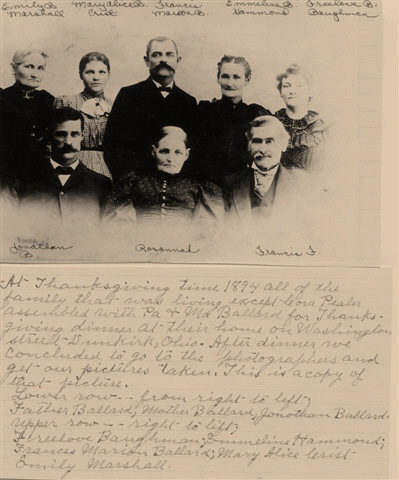 Emily B. Maryalice B. Francis Emmeline B. Freelove B.
Marshall Crist Marion B. Hammond Baughman
Jonathan Rosannah Francis I.
B.
At Thanksgiving time 1894 all of the
family that was living except Cora Pealer
assembled with Pa & Ma Ballard for Thanks-
giving dinner at their home on Washington
street Dunkirk, Ohio. After dinner we
concluded to go to the photographers and
get our pictures taken. This is a copy of
that picture.
Lower row -- from right to left;
Father Ballard, Mother Ballard, Jonathan Ballard.
Upper row -- right to left;
Freelove Baughman; Emmeline Hammond;
Frances Marion Ballard; Mary Alice Crist
Emily Marshall.